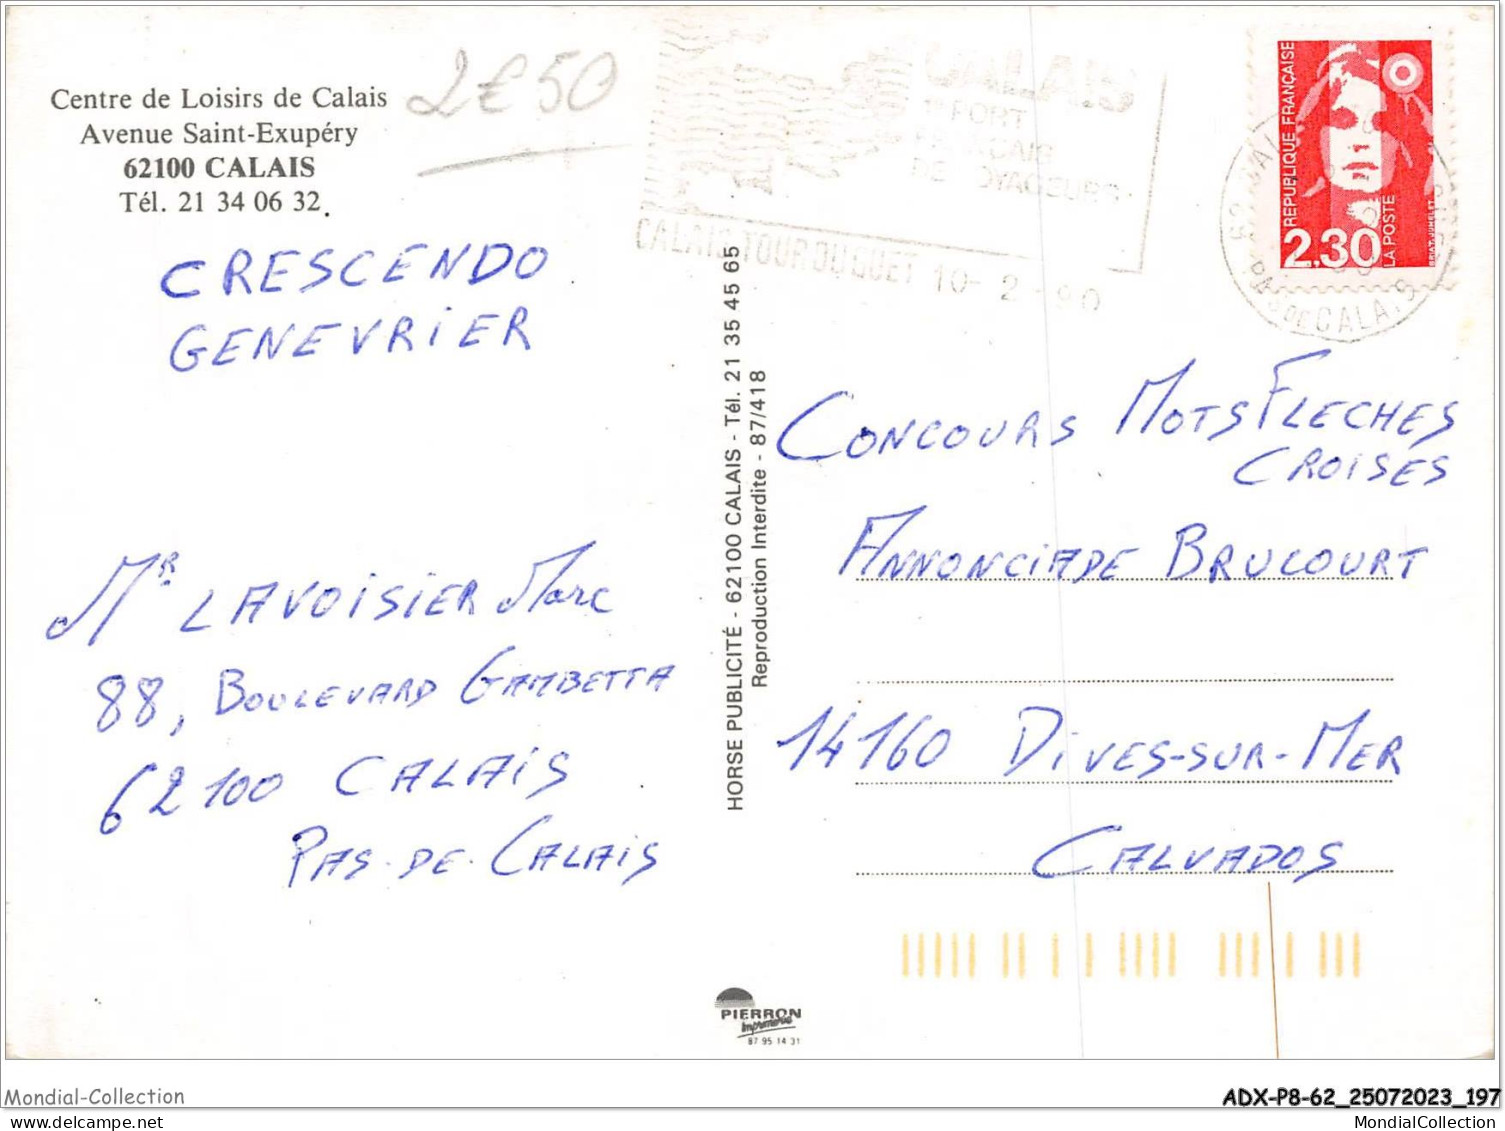 Centre de Loisirs de Calais
Avenue Saint-Exupéry
62100 CALAIS
Tél. 21 34 06 32
2€50
CRESCENDO
GENEVRIER
MR LAVOISIER Marc
88, BOULEVARD GAMBETTA
62100 CALAIS
PAS-DE-CALAIS
HORSE PUBLICITÉ - 62100 CALAIS - Tél. 21 35 45 65
Reproduction Interdite - 87/418
CALAIS
1er PORT
FRANÇAIS
DE VOYAGEURS
CALAIS TOUR DU GUET 10-2-90
RÉPUBLIQUE FRANÇAISE
2,30
LA POSTE
62
PAS DE CALAIS
CONCOURS MOTS FLECHES
CROISES
ANNONCIADE BRUCOURT
14160 DIVES-SUR-MER
CALVADOS
PIERRON
Imprimerie
87 95 14 31
Mondial-Collection
ADX-P8-62_25072023_197
www.delcampe.net
MondialCollection